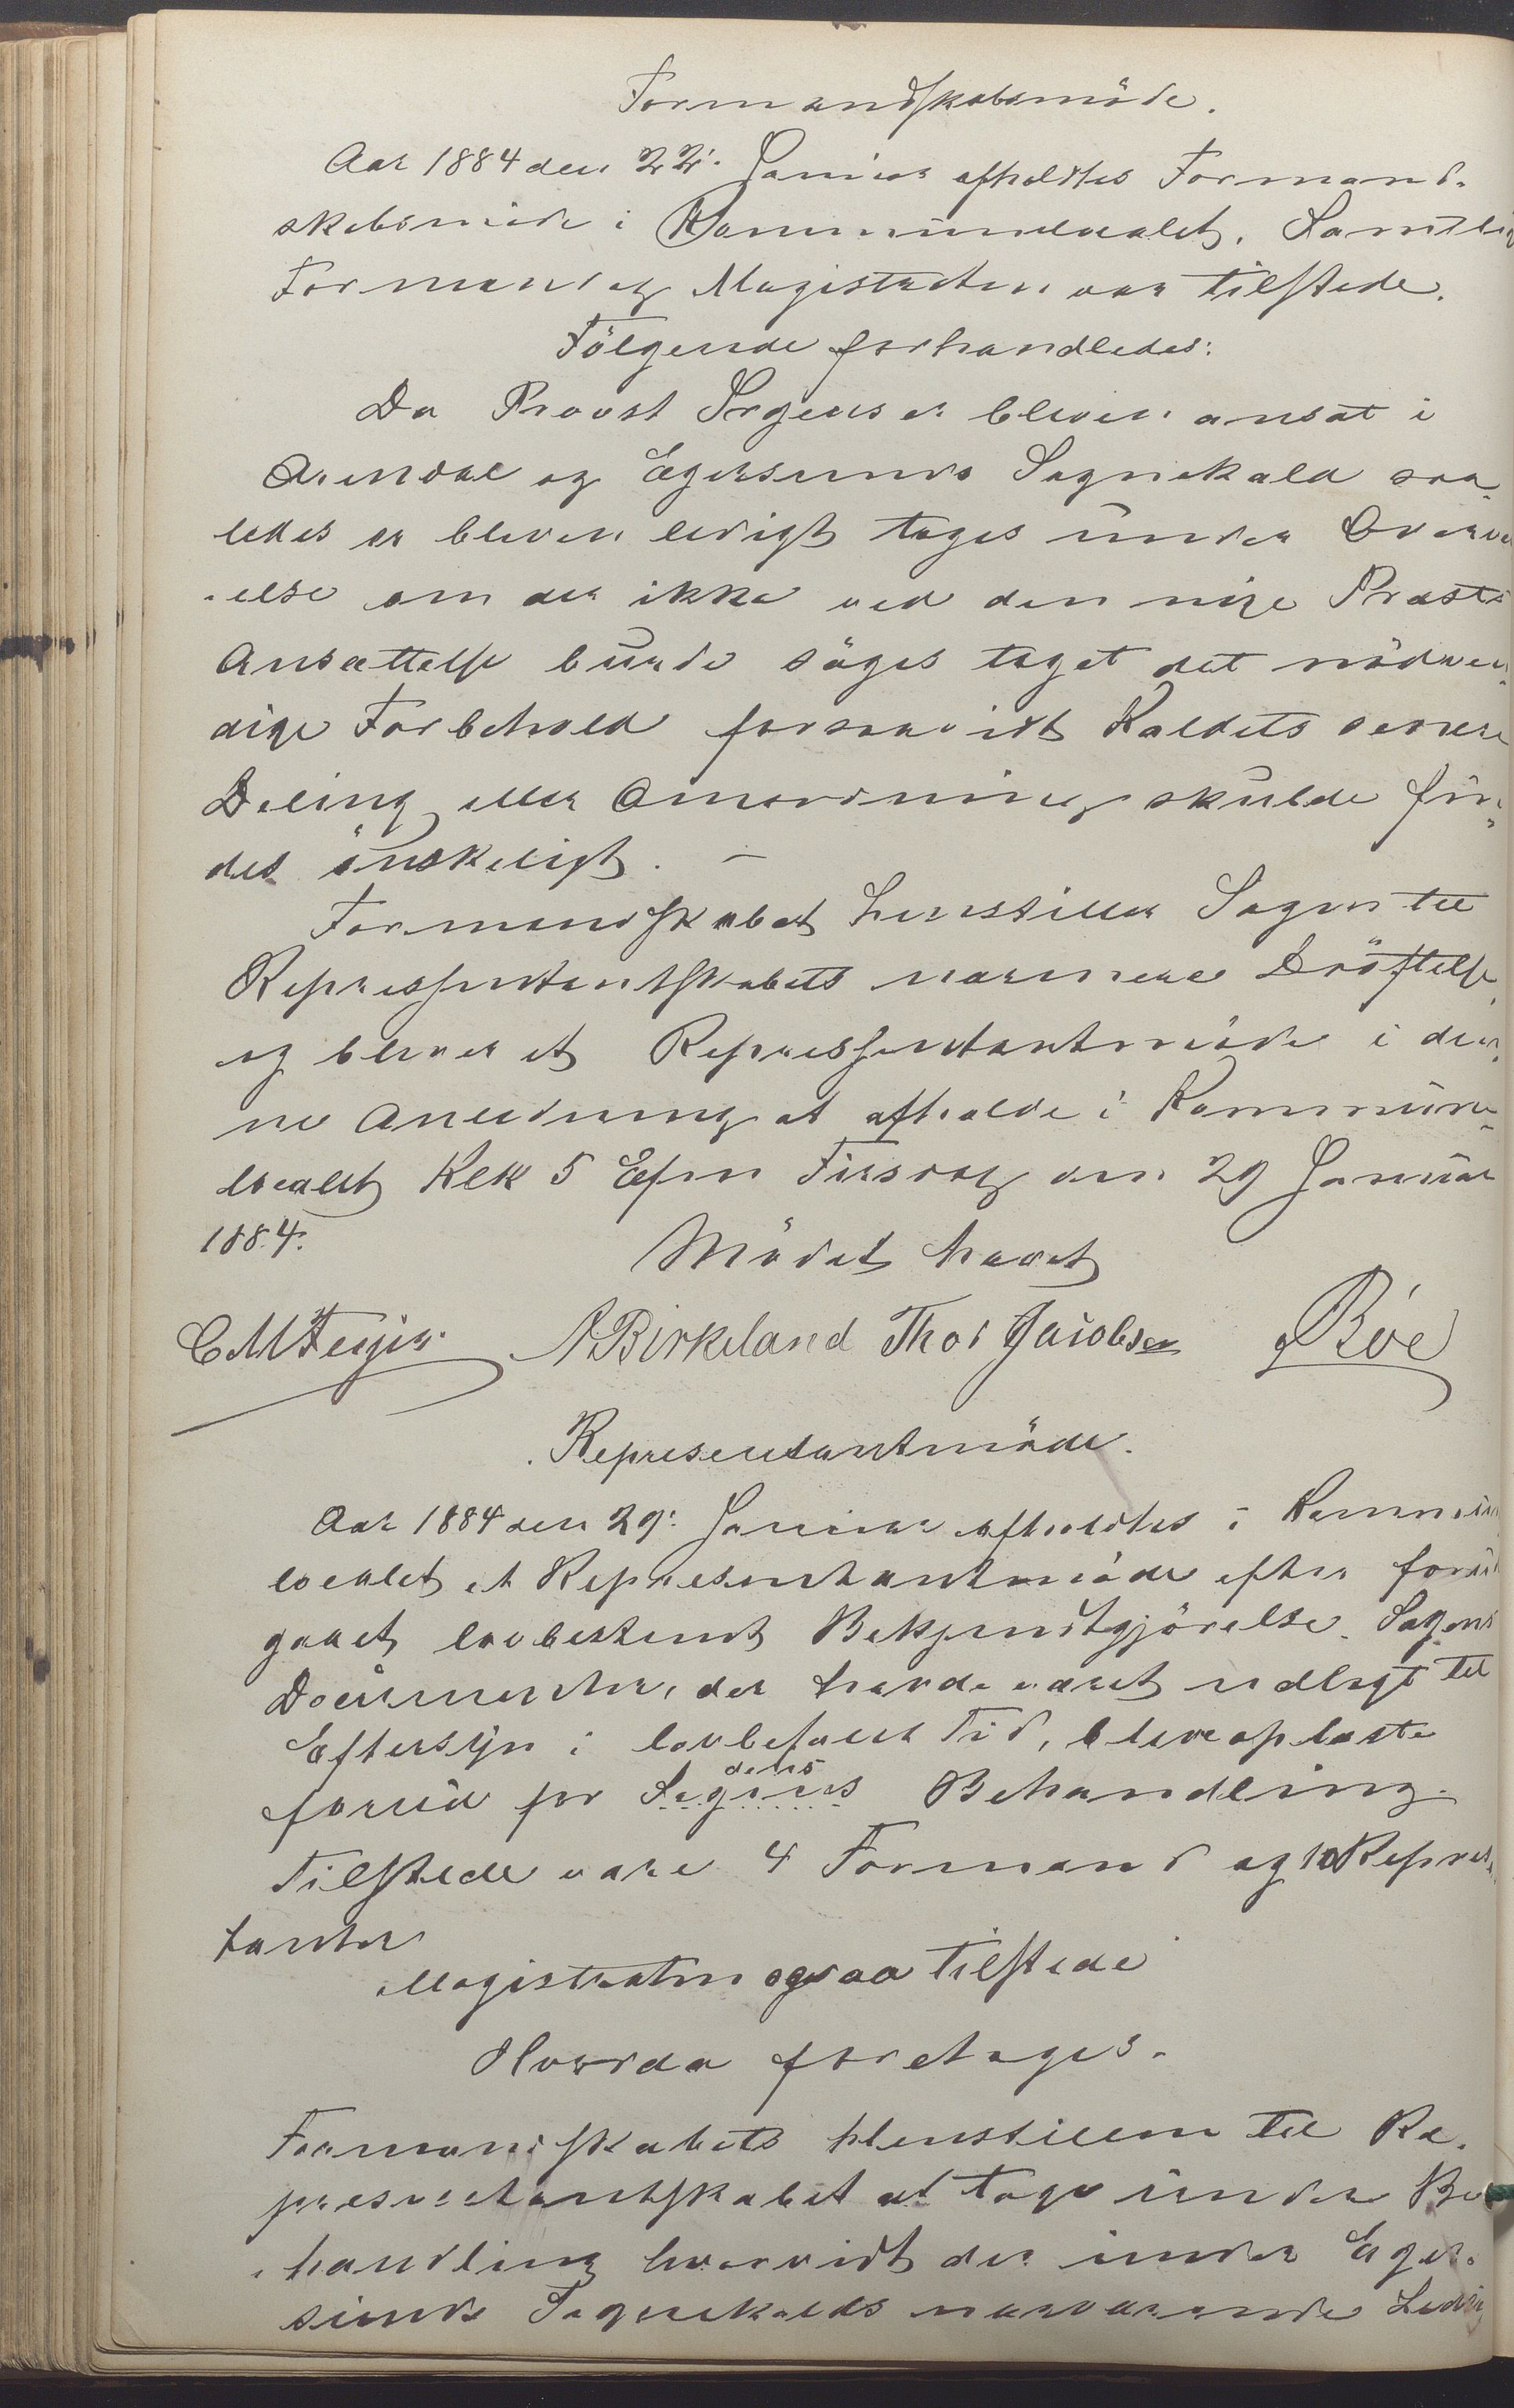 Formandskabsmöde.
Aar 1884 den 22'. Januar afholdtes Formand-
skabsmöde i Kommunelocalet. Samtlig
Formænd og Magistraten var tilstede.
Fölgende forhandledes:
Da Provst Irgens er bleven ansat i
Arendal og Egersunds Sognekald saa-
ledes er bleven ledigt toges under Overvei
-else om der ikke ved den nye Præsts
Ansættelse burde söges taget det nödven-
dige Forbehold forsaavidt Kaldets senere
Deling eller Omordning skulde fin-
des önskeligt. –
Formandskabet henstiller Sagen til
Repressentantskabets nærmere Dröftelse
og bliver et Repressentantmöde i den-
ne Anledning at afholde i Kommune-
localet Klk 5 Efm Tirsdag den 29 Januar
1884.
Mödet hævet
CM Feyer A Birkeland Thor Jacobsen Böe
Representantmöde.
Aar 1884 den 29'. Januar afholdtes i Kommun
localet et Representantmöde efter forud
gaaet lovbestemt Bekjendtgjörelse. Sagens
Documenter, der havde været udlagt til
Eftersyn i lovbefalet Tid, bleve oplæste
forud for Sagens dens Behandling.
Tilstede vare 4 Formænd og 10 Represen
tanter
Magistraten ogsaa tilstede
Hvorda foretoges.
Formandskabets Henstillen til Re-
presentantskabet at tage under Be
-handling hvorvidt der under Eger-
sunds Sognekalds nærværende Ledig